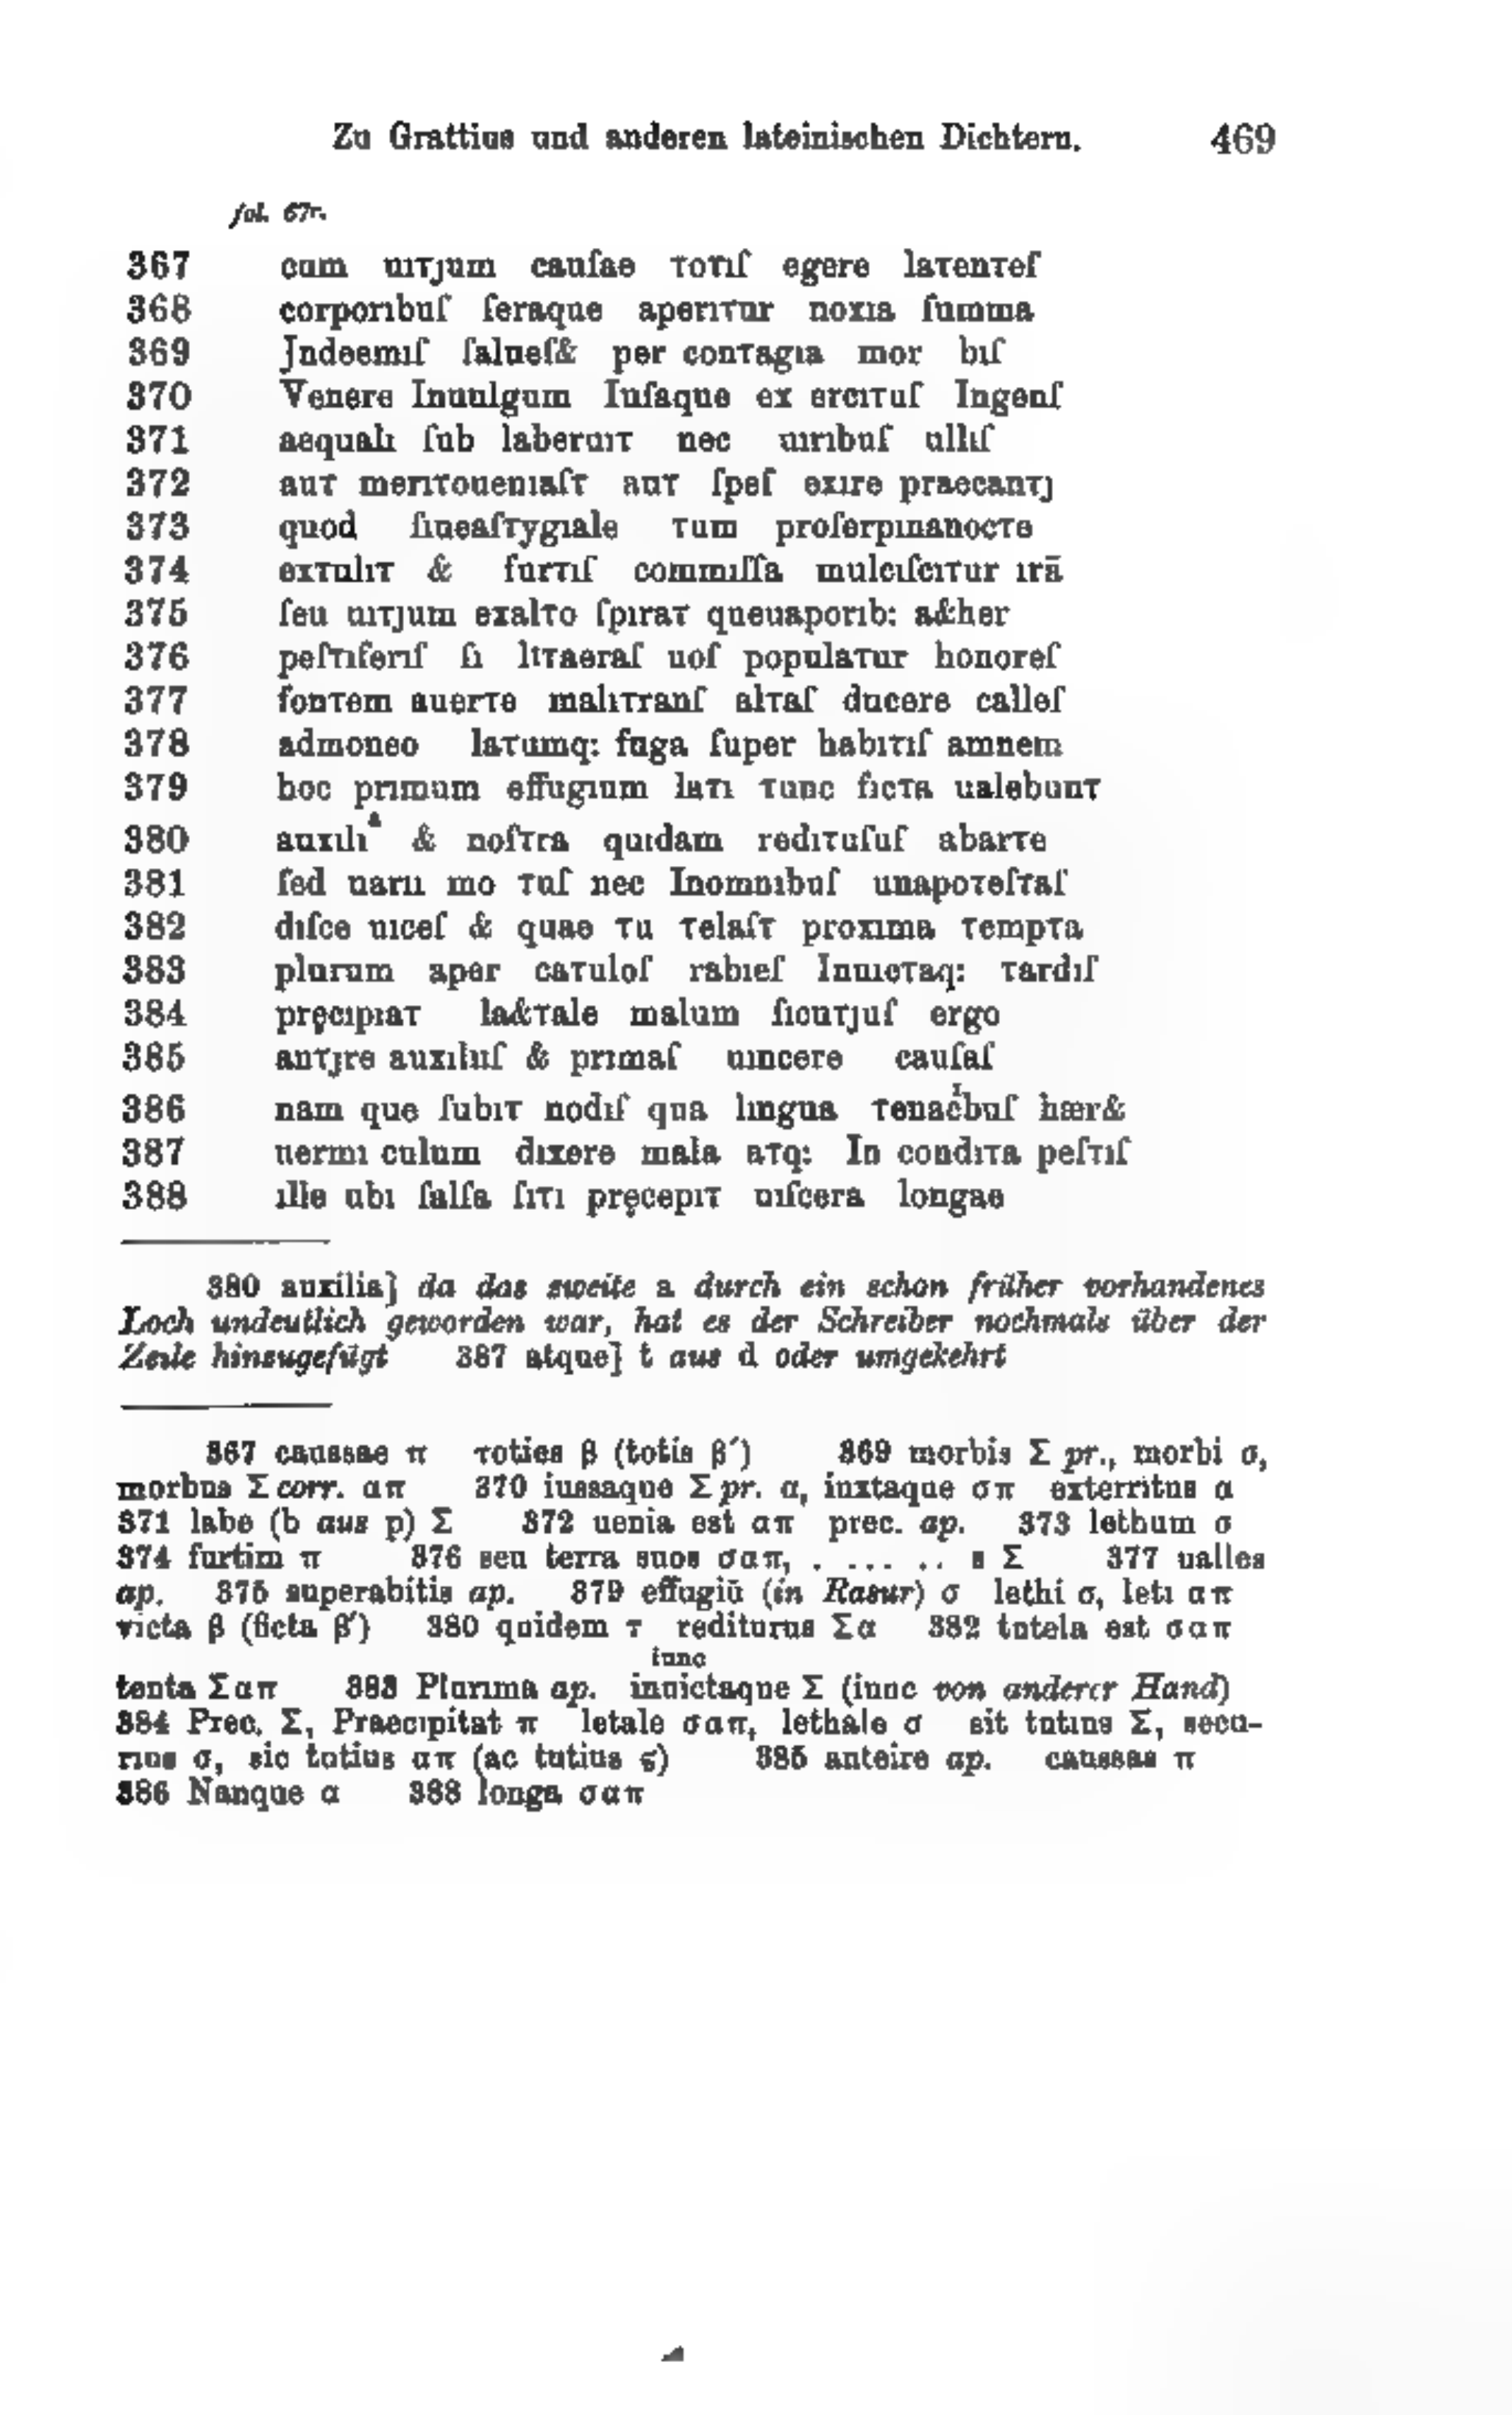 Zu Grattius und anderen lateinischen Dichtern. 469
fol. 67r.
367 cum uıτȷum cauſae τoτıſ egere laτenτeſ
368 corporıbuſ ſeraque aperıτur noxıa ſumma
369 Jndeemıſ ſalueſ& per conτagıa mor bıſ
370 Venere Inuulgum Iuſaque ex ercıτuſ Ingenſ
371 aequalı ſub laberuıτ nec uırıbuſ ullıſ
372 auτ merıτouenıaſτ auτ ſpeſ exıre praecanτȷ
373 quod ſıueaſτygıale τum proſerpınanocτe
374 exτulıτ & furτıſ commıſſa mulcıſcıτur ırā
375 ſeu uıτȷum exalτo ſpıraτ queuaporıb: a&her
376 peſτıferıſ ſı lıτaeraſ uoſ populaτur honoreſ
377 fonτem auerτe malıτranſ alτaſ ducere calleſ
378 admoneo laτumq: fuga ſuper habıτıſ amnem
379 hoc prımum effugıum laτı τunc ficτa ualebunτ
380 auxılıᵃ & noſτra quıdam redıτuſuſ abarτe
381 ſed uarıı mo τuſ nec Inomnıbuſ unapoτeſτaſ
382 dıſce uıceſ & quae τu τelaſτ proxıma τempτa
383 plurum aper caτuloſ rabıeſ Inuıcτaq: τardıſ
384 pręcıpıaτ la&τale malum ſıcuτȷuſ ergo
385 anτȷre auxılıuſ & prımaſ uıncere cauſaſ
386 nam que ſubıτ nodıſ qua lıngua τenacᶦbuſ hær&
387 uermı culum dıxere mala aτq: In condıτa peſτıſ
388 ılle ubı ſalſa ſıτı pręcepıτ uıſcera longae
380 auxilia] da das zweite a durch ein schon früher vorhandenes
Loch undeutlich geworden war, hat es der Schreiber nochmals über der
Zeile hinzugefügt 387 atque] t aus d oder umgekehrt
367 caussae π τoties β (totis β′) 369 morbis Σ pr., morbi σ,
morbus Σ corr. απ 370 iussaque Σ pr. α, iuxtaque σπ exterritus α
371 labe (b aus p) Σ 372 uenia est απ prec. ap. 373 lethum σ
374 furtim π 376 seu terra suos σαπ, . ... .. s Σ 377 ualles
ap. 375 superabitis ap. 379 effugiū (in Rasur) σ lethi σ, letı απ
victa β (ficta β′) 380 quidem τ rediturus Σα 382 tutela est σαπ
iunc
tenta Σαπ 383 Plurıma ap. inuictaque Σ (iunc von anderer Hand)
384 Prec. Σ, Praecıpitat π letale σαπ, lethale σ sit tutıus Σ, secu-
rıus σ, sic totius απ (ac tutius ς) 385 anteire ap. caussas π
386 Nanque α 388 longa σαπ